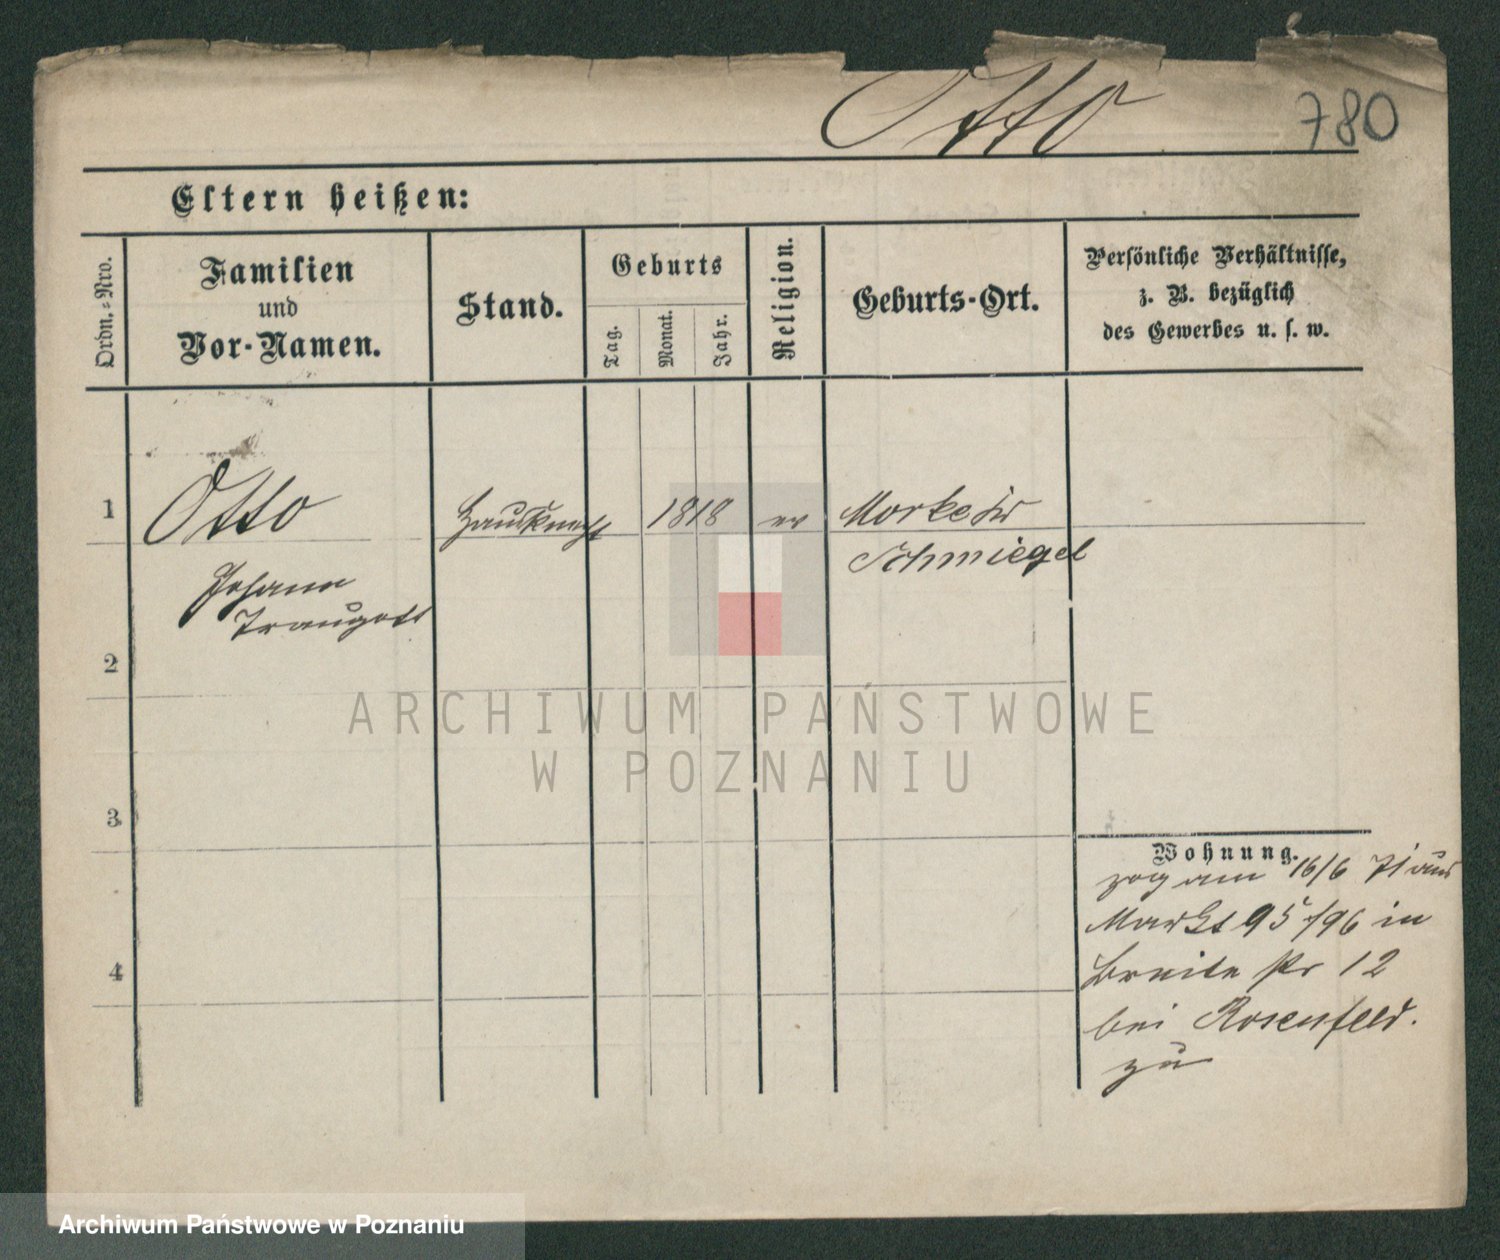 Otto 780
Eltern heißen:
Ordn.-Nro.
Familien
und
Vor-Namen.
Stand.
Geburts
Tag.
Monat.
Jahr.
Religion.
Geburts-Ort.
Persönliche Verhältnisse,
z. B. bezüglich
des Gewerbes u. s. w.
1 Otto Hausknecht 1818 ev
Schmiegel
Johann
Traugott
2
3
4
Wohnung.
zog am 16/6 71 aus
Markt 95/96 in
Breite Str 12
bei Rosenfeld.
zu
ARCHIWUM PAŃSTWOWE
W POZNANIU
Archiwum Państwowe w Poznaniu